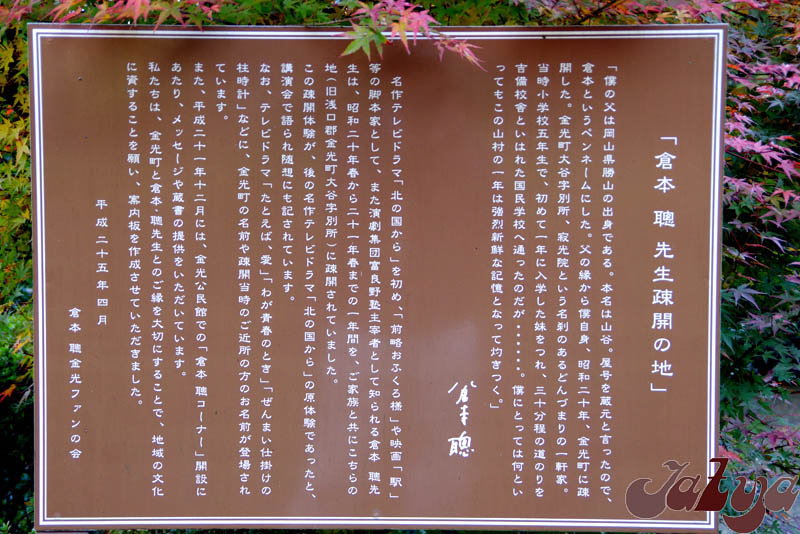 「倉本 聰 先生疎開の地」
「僕の父は岡山県勝山の出身である。本名は山谷。屋号を蔵元と言ったので、
倉本というペンネームにした。父の縁から僕自身、昭和二十年、金光町に疎
開した。金光町大谷字別所、寂光院という名刹のあるどんづまりの一軒家。
当時小学校五年生で、初めて一年に入学した妹をつれ、三十分程の道のりを
吉備校舎といはれた国民学校へ通ったのだが・・・・・・。僕にとっては何とい
ってもこの山村の一年は強烈新鮮な記憶となって灼きつく。」
倉本聰
名作テレビドラマ「北の国から」を初め、「前略おふくろ様」や映画「駅」
等の脚本家として、また演劇集団富良野塾主宰者として知られる倉本 聰先
生は、昭和二十年春から二十一年春までの一年間を、ご家族と共にこちらの
地(旧浅口郡金光町大谷字別所)に疎開されていました。
この疎開体験が、後の名作テレビドラマ「北の国から」の原体験であったと、
講演会で語られ随想にも記されています。
なお、テレビドラマ「たとえば、愛」「わが青春のとき」「ぜんまい仕掛けの
柱時計」などに、金光町の名前や疎開当時のご近所の方のお名前が登場され
ています。
また、平成二十一年十二月には、金光公民館での「倉本 聰コーナー」開設に
あたり、メッセージや蔵書の提供をいただいています。
私たちは、金光町と倉本 聰先生とのご縁を大切にすることで、地域の文化
に資することを願い、案内板を作成させていただきました。
平成二十五年四月
倉本 聰金光ファンの会
JaLya